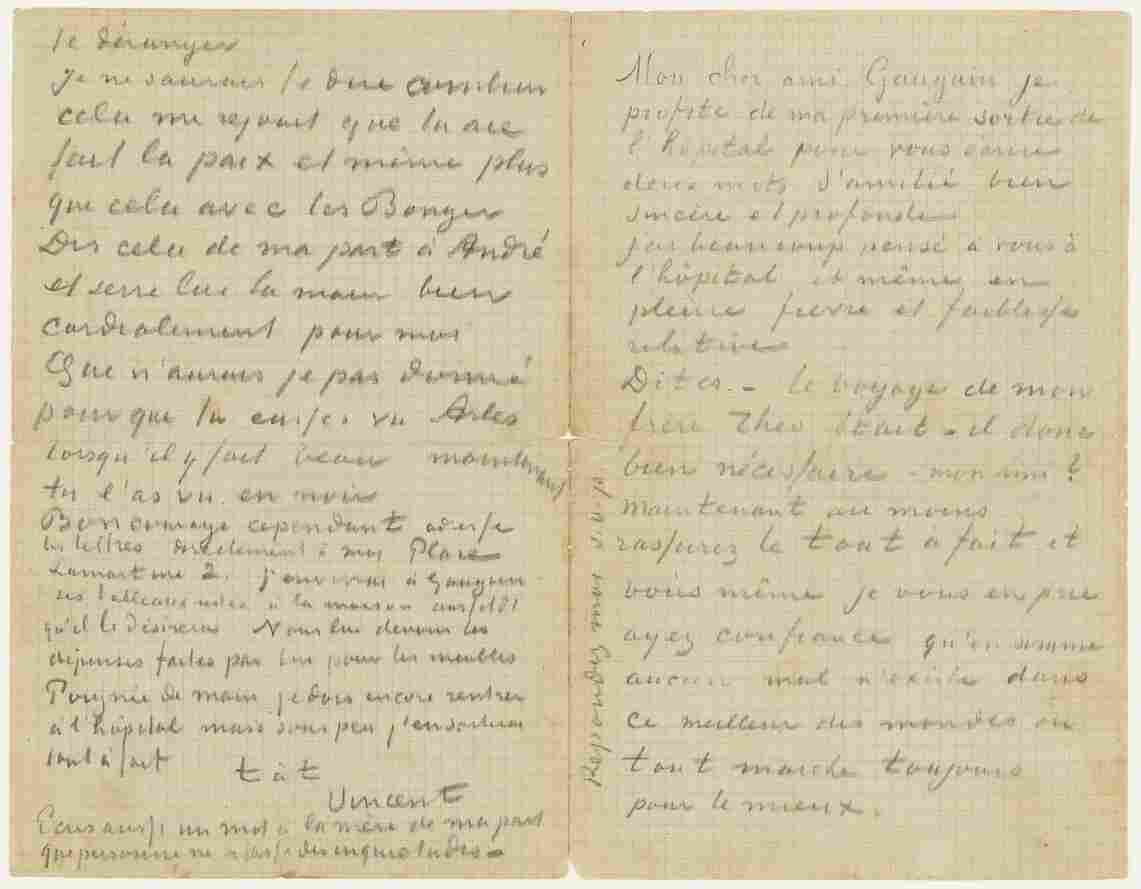 te déranger
Je ne saurais te dire combien
cela me rejouit que tu aie
fait la paix et même plus
que cela avec les Bonger
Dis cela de ma part à André
et serre lui la main bien
cordialement pour moi
Que n'aurais je pas donné
pour que tu eusses vu Arles
lorsqu'il y fait beau maintenant
tu l'as vu en noir
Bon courage cependant adresse
les lettres directement à moi Place
Lamartine 2. j'enverrai à Gauguin
ses tableaux restés à la maison aussitôt
qu'il le désirera Nous lui devons les
dépenses faites par lui pour les meubles
Poignée de main je dois encore rentrer
à l'hôpital mais sous peu j'en sortirai
tout à fait
t à t
Vincent
Ecris aussi un mot à la mère de ma part
que personne ne s'inquiete
Mon cher ami Gauguin je
profite de ma première sortie de
l'hôpital pour vous écrire
deux mots d'amitié bien
sincère et profonde
j'ai beaucoup pensé à vous à
l'hôpital et même en
pleine fievre et faiblesse
relative
Dites. – le voyage de mon
frère Theo était-il donc
bien nécessaire – mon ami?
maintenant au moins
rassurez le tout à fait et
vous même je vous en prie
ayez confiance qu'en somme
aucun mal n'existe dans
ce meilleur des mondes où
tout marche toujours
pour le mieux.
Repondez moi s.v.p.